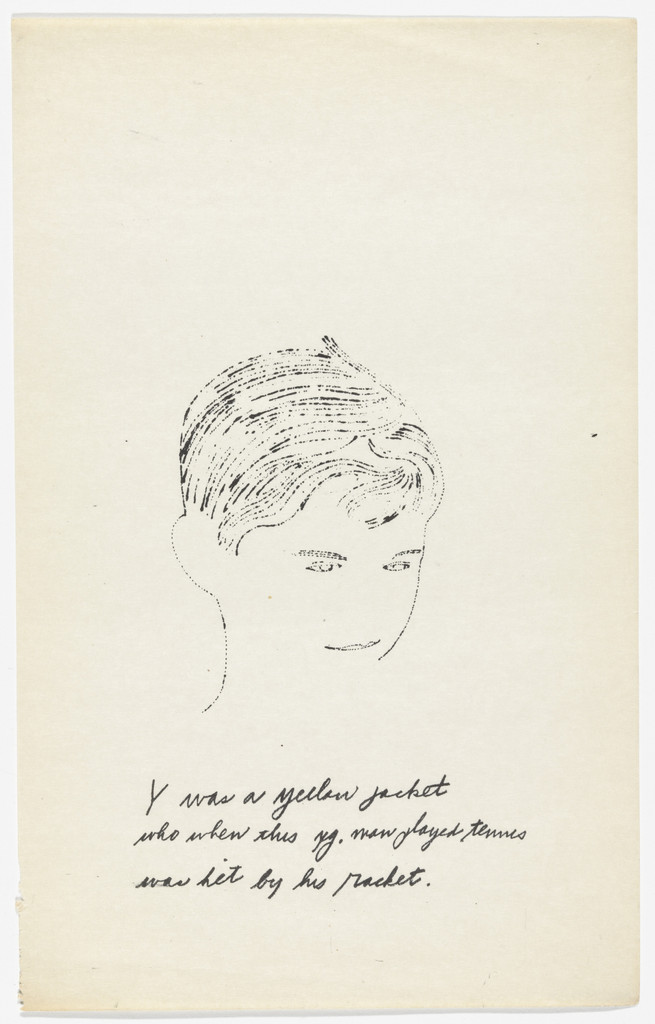 Y was a yellow jacket
who when this yg. man played tennis
was hit by his racket.